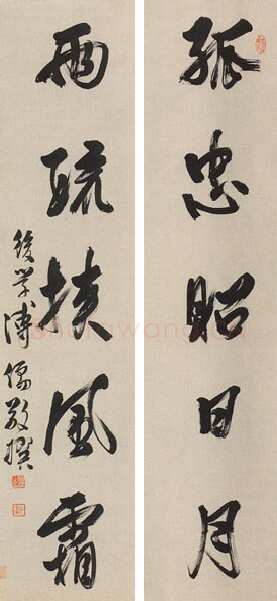 孤忠昭日月
兩疏扶風霜
後學溥儒敬撰